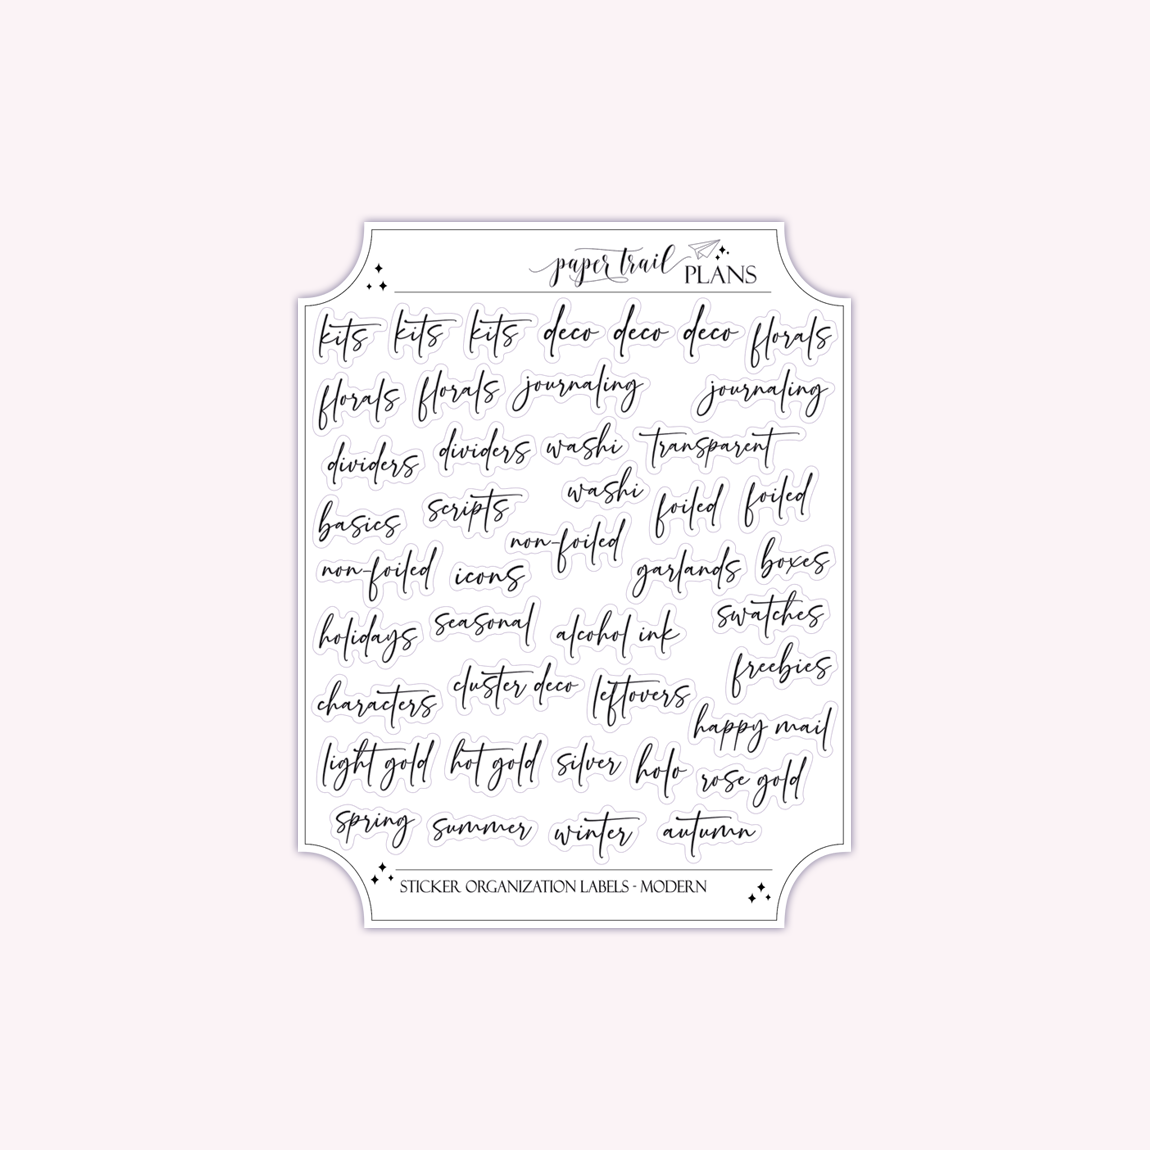 paper trail PLANS
kits kits kits deco deco deco florals
florals florals journaling journaling
dividers dividers washi transparent
basics scripts washi foiled foiled
non-foiled icons non-foiled garlands boxes
holidays seasonal alcohol ink swatches
characters cluster deco leftovers freebies
happy mail
light gold hot gold silver holo rose gold
spring summer winter autumn
STICKER ORGANIZATION LABELS - MODERN